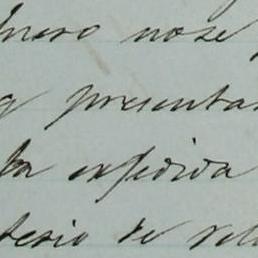 nero no se
q presenta
la expedida
terio de rela